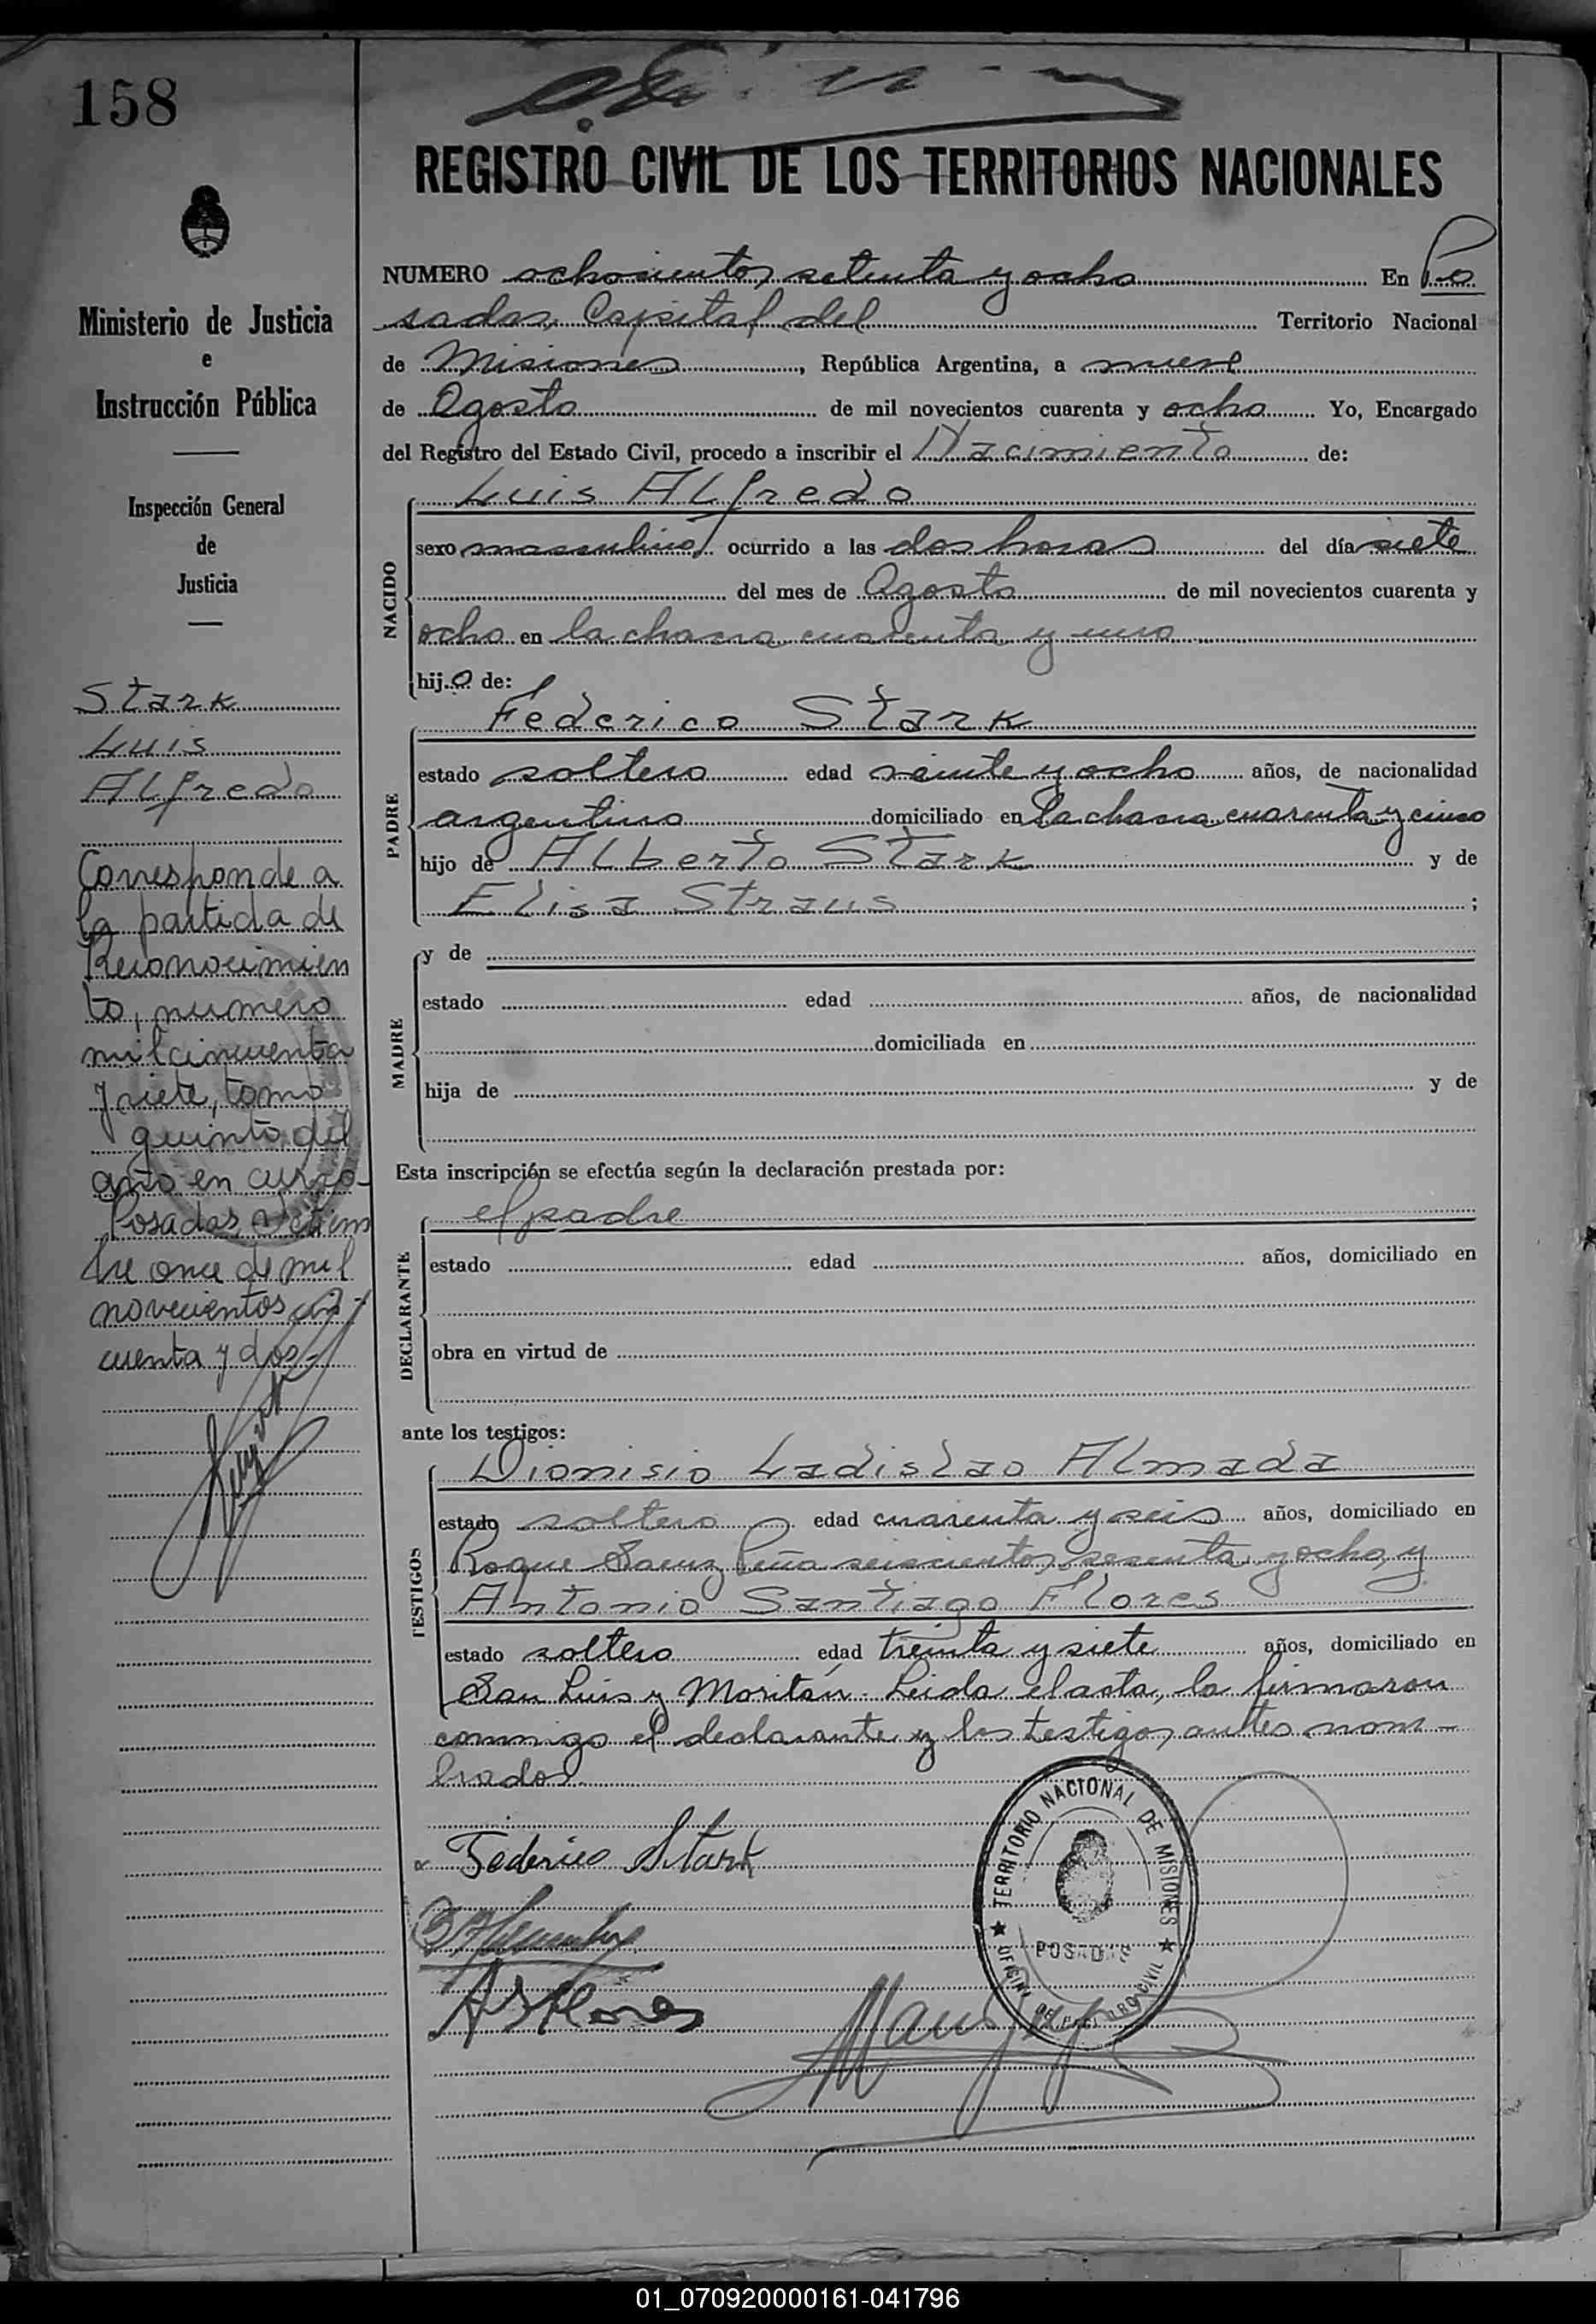 158
REGISTRO CIVIL DE LOS TERRITORIOS NACIONALES
Ministerio de Justicia
e
Instrucción Pública
Inspección General
de
Justicia
Stark
Luis
Alfredo
Corresponde a
la partida de
Reconocimien
to, numero
mil cincuenta
y siete, tomo
quinto del
año en curso-
Posadas, Setiem
bre once de mil
novecientos cin-
cuenta y dos-
NUMERO ochocientos setenta y ocho En Po
sadas, Capital del Territorio Nacional
de Misiones, República Argentina, a nueve
de Agosto de mil novecientos cuarenta y ocho Yo, Encargado
del Registro del Estado Civil, procedo a inscribir el Nacimiento de:
NACIDO
Luis Alfredo
sexo masculino ocurrido a las dos horas del día siete
del mes de Agosto de mil novecientos cuarenta y
ocho en la chacra cuarenta y uno
hijo de:
PADRE
Federico Stark
estado soltero edad veinte y ocho años, de nacionalidad
argentino domiciliado en la chacra cuarenta y cinco
hijo de Alberto Stark y de
Elisa Straus ;
MADRE
y de
estado edad años, de nacionalidad
domiciliada en
hija de y de
Esta inscripción se efectúa según la declaración prestada por:
DECLARANTE
el padre
estado edad años, domiciliado en
obra en virtud de
ante los testigos:
TESTIGOS
Dionisio Ladislao Almada
estado soltero edad cuarenta y seis años, domiciliado en
Roque Saenz Peña seiscientos sesenta y ocho y
Antonio Santiago Flores
estado soltero edad treinta y siete años, domiciliado en
San Luis y Moritán. Leida el acta, la firmaron
conmigo el declarante y los testigos antes nom-
brados
Federico Stark
ASFlores
TERRITORIO NACIONAL DE MISIONES
POSADAS
OFICINA DEL REGISTRO CIVIL
01_070920000161-041796